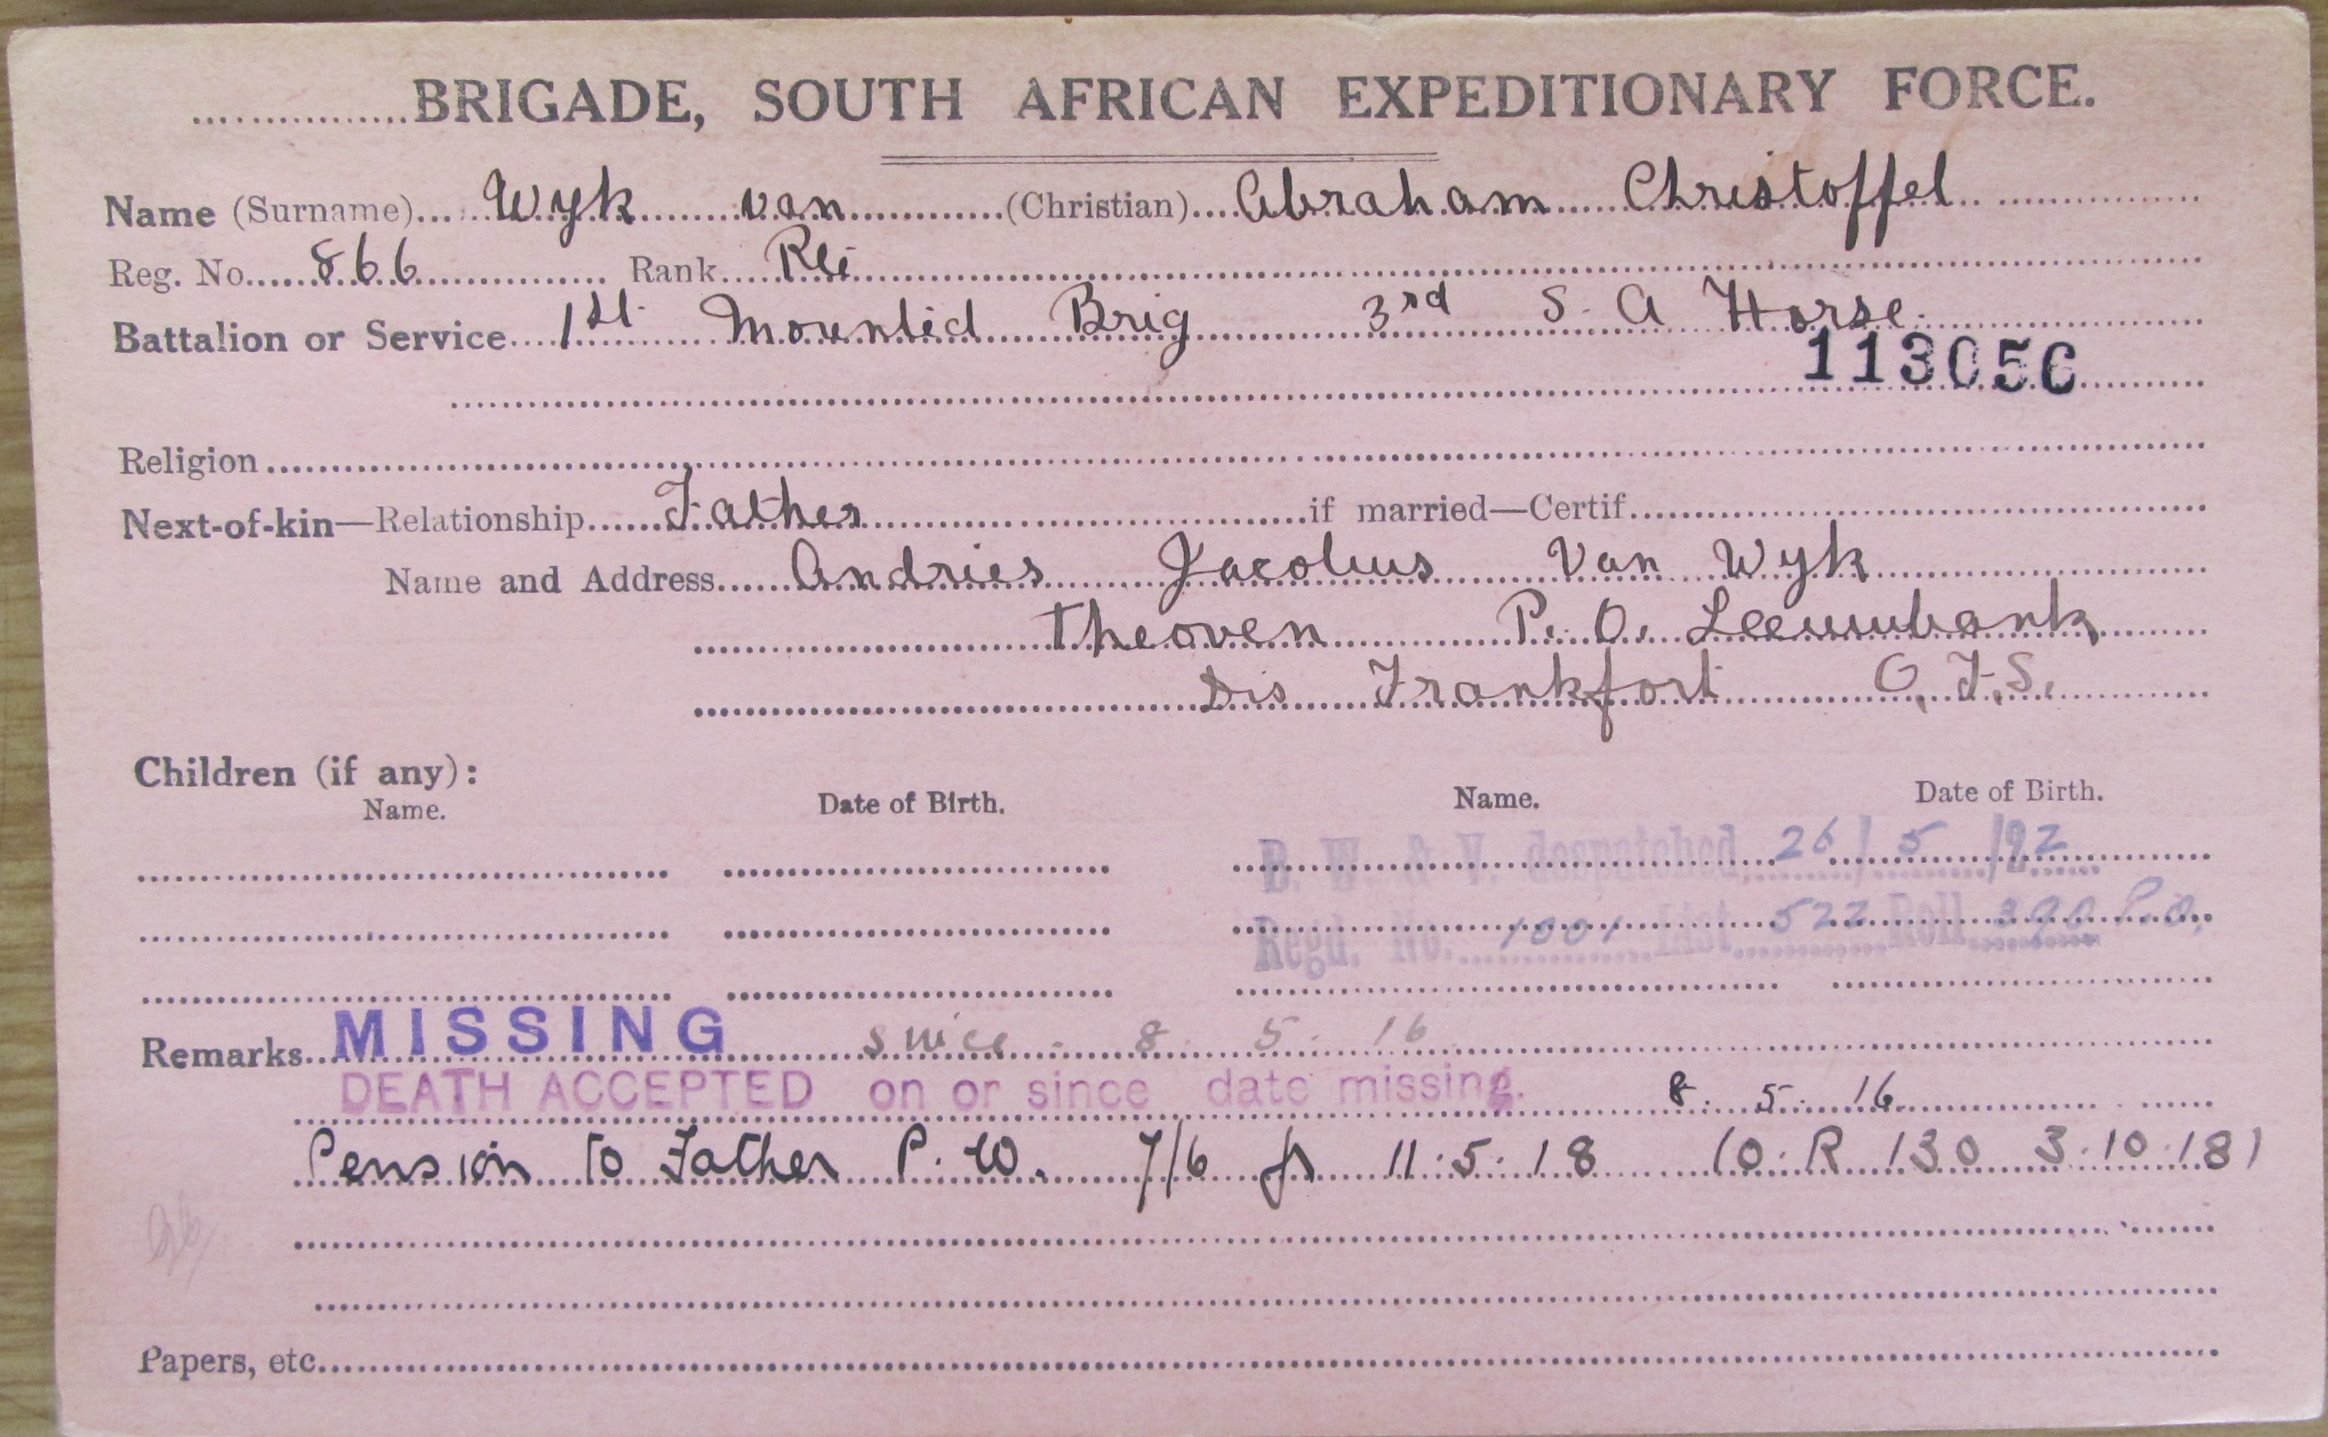 ................BRIGADE, SOUTH AFRICAN EXPEDITIONARY FORCE.
Name (Surname).... Wyk van (Christian).... Abraham Christoffel
Reg. No. 866 Rank
Battalion or Service 1st Mounted Brig 3rd S. A Horse.
113056
Religion
Next-of-kin—Relationship Father if married—Certif.
Name and Address Andries Jacobus Van Wyk
Theoven P. O. Leeuwbank
Dis Frankfort O.F.S.
Children (if any):
Name. Date of Birth. Name. Date of Birth.
B. W. & V. despatched 26/5/92
Regd. No. 1001 List 522 Roll 390 P.O.
Remarks MISSING since 8 5 16
DEATH ACCEPTED on or since date missing. 8. 5. 16
Pension to Father P. W. 7/6 fr 11.5.18 (O.R 130 3.10.18)
Papers, etc.